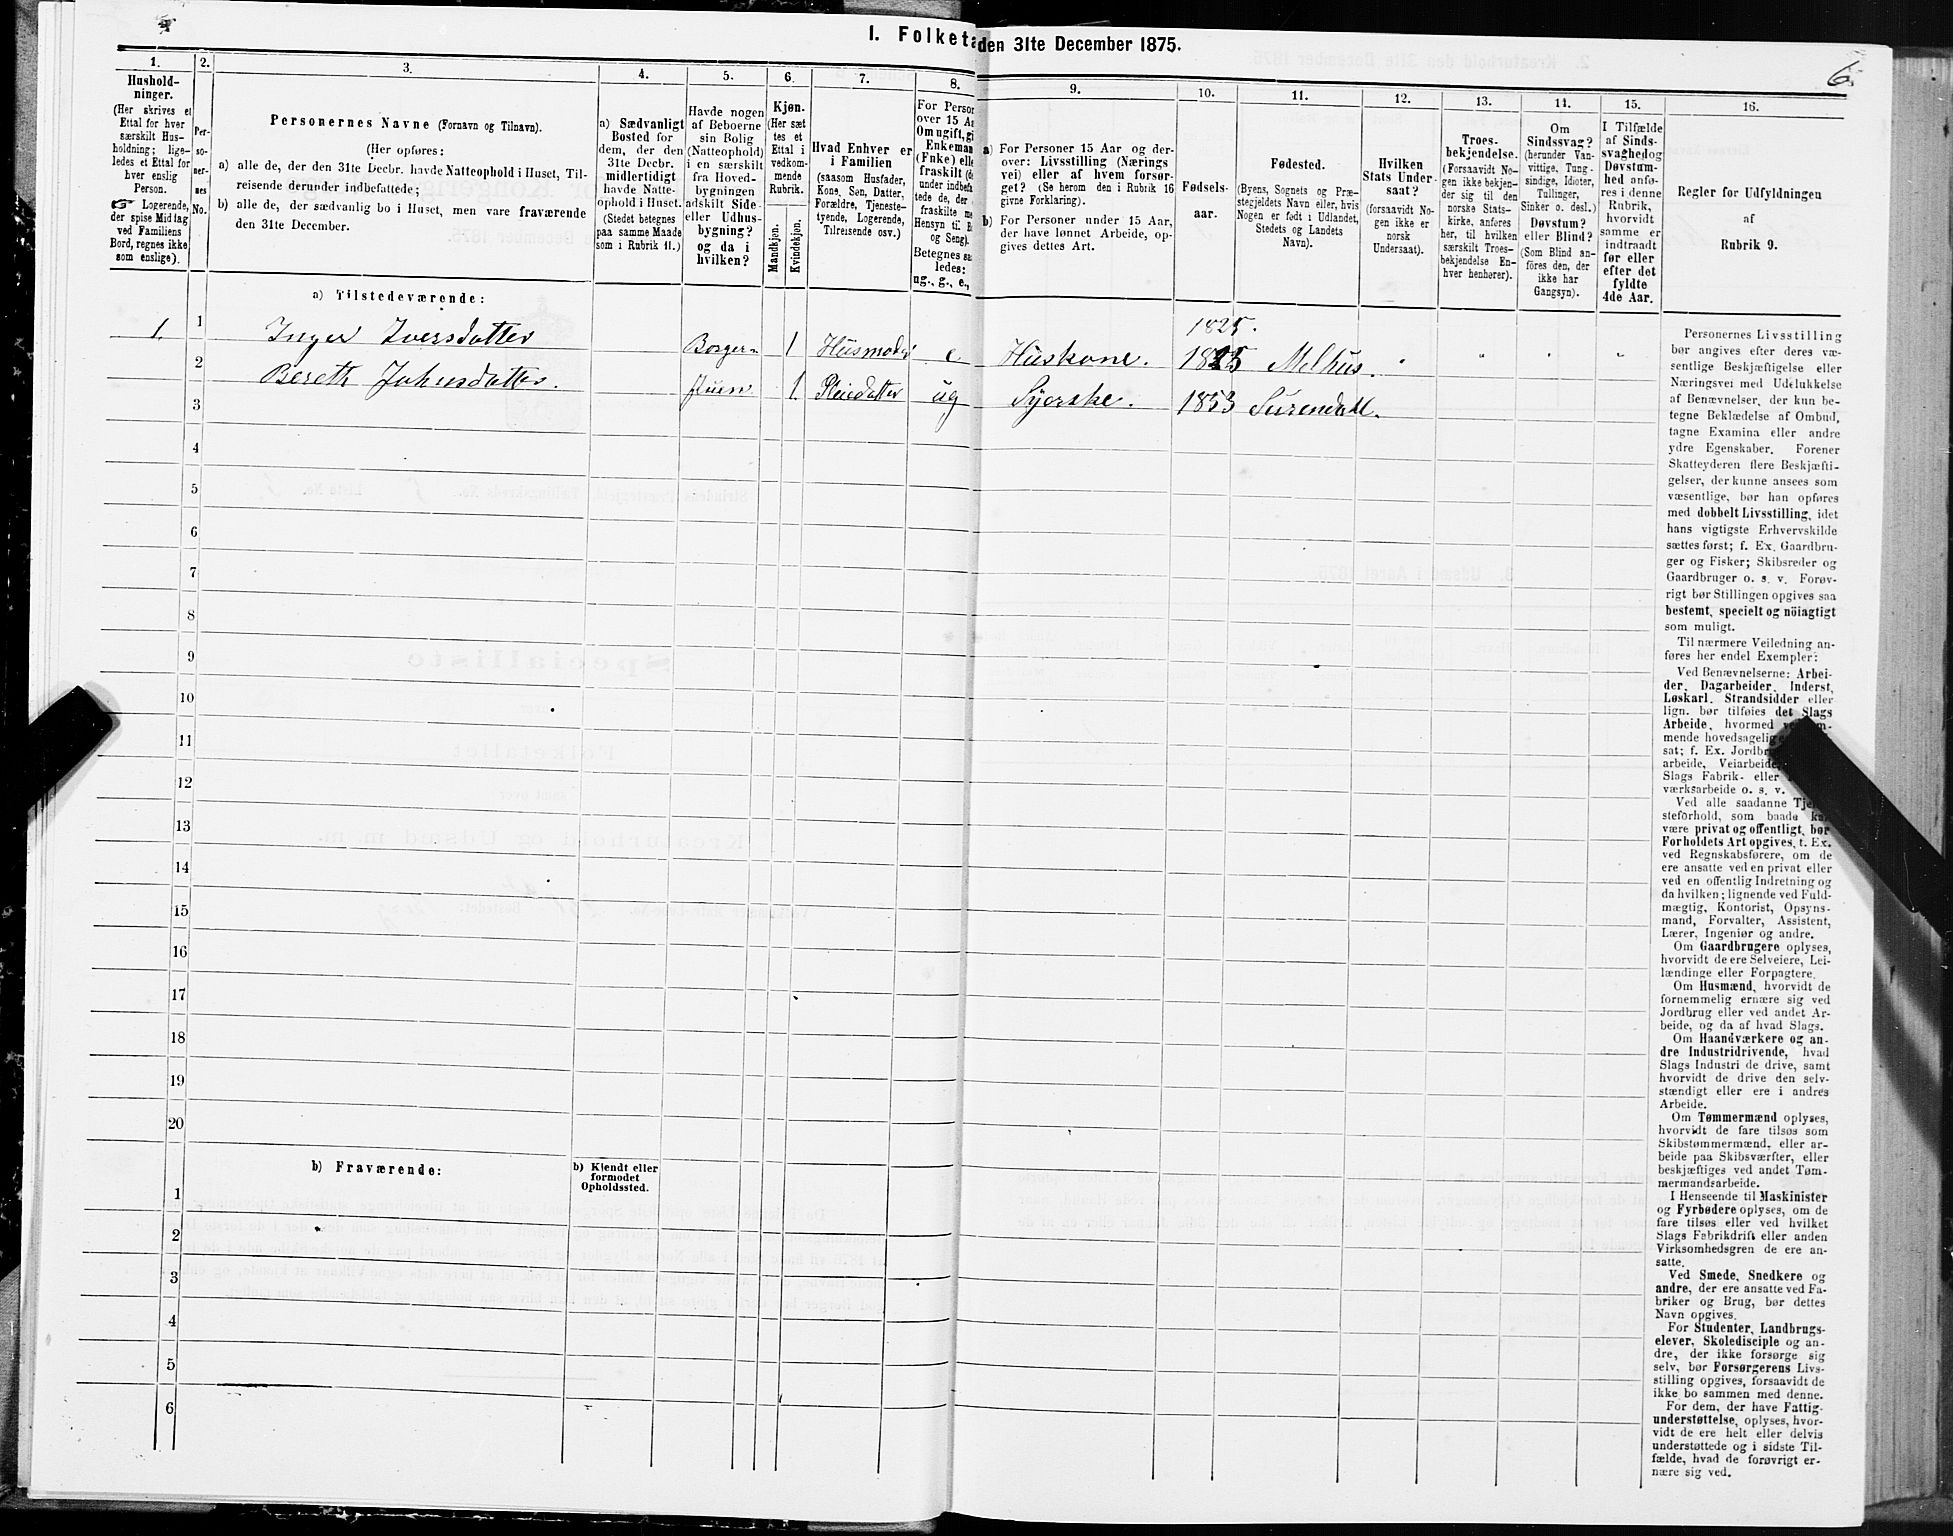 I. Folketa
den 31te December 1875.
6
1.
Hushold-
ninger.
(Her skrives et
Ettal for hver
særskilt Hus-
holdning; lige-
ledes et Ettal for
hver enslig
Person.
Logerende,
der spise Middag
ved Familiens
Bord, regnes ikke
som enslige).
2.
Per-
so-
ner-
nes
No.
3.
Personernes Navne (Fornavn og Tilnavn).
(Her opføres:
a) alle de, der den 31te Decbr. havde Natteophold i Huset, Til-
reisende derunder indbefattede;
b) alle de, der sædvanlig bo i Huset, men vare fraværende
den 31te December.
4.
a) Sædvanligt
Bosted for
dem, der den
31te Decbr.
midlertidigt
havde Natte-
ophold i Huset.
(Stedet betegnes
paa samme Maade
som i Rubrik 11.)
5.
Havde nogen
af Beboerne
sin Bolig
(Natteophold)
i en særskilt
fra Hoved-
bygningen
adskilt Side-
eller Udhus-
bygning?
og da i
hvilken?
6.
Kjøn.
(Her sæt
tes et
Ettal i
vedkom-
mende
Rubrik.)
Mandkjøn.
Kvindekjøn.
7.
Hvad Enhver er
i Familien
(saasom Husfader,
Kone, Søn, Datter,
Forældre, Tjeneste-
tyende, Logerende,
Tilreisende osv.)
8.
For Person
over 15 Aa
Om ugift, gi
Enkeman
(Enke) elle
fraskilt (d
under indbefa
tede de, der
fraskilte m
Hensyn til B
og Seng).
Betegnes sa
ledes:
ug., g., e.,
9.
a) For Personer 15 Aar og der-
over: Livsstilling (Nærings
vei) eller af hvem forsør-
get? (Se herom den i Rubrik 16
givne Forklaring).
b) For Personer under 15 Aar,
der have lønnet Arbeide, op-
gives dettes Art.
10.
Fødsels-
aar.
11.
Fødested.
(Byens, Sognets og Præ-
stegjeldets Navn eller, hvis
Nogen er født i Udlandet,
Stedets og Landets
Navn).
12.
Hvilken
Stats Under-
saat?
(forsaavidt No-
gen ikke er
norsk
Undersaat).
13.
Troes-
bekjendelse.
(Forsaavidt No-
gen ikke bekjen-
der sig til den
norske Stats-
kirke, anføres
her, til hvilken
særskilt Troes-
bekjendelse En-
hver henhører).
14.
Om
Sindssvag?
(herunder Van-
vittige, Tung-
sindige, Idioter,
Tullinger,
Sinker o. desl.)
Døvstum?
eller Blind?
(Som Blind an-
føres den, der
ikke har
Gangsyn).
15.
I Tilfælde
af Sinds-
svaghed og
Døvstum-
hed anfø-
res i denne
Rubrik,
hvorvidt
samme er
indtraadt
før eller
efter det
fyldte
4de Aar.
16.
Regler for Udfyldningen
af
Rubrik 9.
a) Tilstedeværende:
1. 1 Inger Iversdatter Borger- 1 Husmoder e Huskone. 1825. 1825 Melhus. " " " "
2 Bereth Johnsdatter. stuen 1. Pleiedatter ug Syerske. 1853 Surendal.
3
4
5
6
7
8
9
10
11
12
13
14
15
16
17
18
19
20
b) Fraværende:
b) Kjendt eller
formodet
Opholdssted.
1
2
3
4
5
6
Personernes Livsstilling
bør angives efter deres væ-
sentlige Beskjæftigelse eller
Næringsvei med Udelukkelse
af Benævnelser, der kun be-
tegne Beklædelse af Ombud,
tagne Examina eller andre
ydre Egenskaber. Forener
Skatteyderen flere Beskjæfti-
gelser, der kunne ansees som
væsentlige, bør han opføres
med dobbelt Livsstilling, idet
hans vigtigste Erhvervskilde
sættes først; f. Ex. Gaardbru-
ger og Fisker; Skibsreder og
Gaardbruger o. s. v. Forøv-
rigt bør Stillingen opgives saa
bestemt, specielt og nöiagtigt
som muligt.
Til nærmere Veiledning an-
føres her endel Exempler:
Ved Benævnelserne: Arbei-
der, Dagarbeider, Inderst,
Løskarl, Strandsidder eller
lign. bør tilføies det Slags
Arbeide, hvormed
mende hovedsagelig
sat; f. Ex. Jordbr
arbeide, Veiarbeide,
Slags Fabrik- eller
værksarbeide o. s. v.
Ved alle saadanne Tje
steforhold, som baade ka
være privat og offentligt, bør
Forholdets Art opgives, f. Ex.
ved Regnskabsførere, om de
ere ansatte ved en privat eller
ved en offentlig Indretning og
da hvilken; lignende ved Fuld-
mægtig, Kontorist, Opsyns-
mand, Forvalter, Assistent,
Lærer, Ingeniør og andre.
Om Gaardbrugere oplyses,
hvorvidt de ere Selveiere, Lei-
lændinge eller Forpagtere.
Om Husmænd, hvorvidt de
fornemmelig ernære sig ved
Jordbrug eller ved andet Ar-
beide, og da af hvad Slags.
Om Haandværkere og an-
dre Industridrivende, hvad
Slags Industri de drive, samt
hvorvidt de drive den selv-
stændigt eller ere i andres
Arbeide.
Om Tømmermænd oplyses,
hvorvidt de fare tilsøs som
Skibstømmermænd, eller ar-
beide paa Skibsværfter, eller
beskjæftiges ved andet Tøm-
mermandsarbeide.
I Henseende til Maskinister
og Fyrbødere oplyses, om de
fare tilsøs eller ved hvilket
Slags Fabrikdrift eller anden
Virksomhedsgren de ere an-
satte.
Ved Smede, Snedkere og
andre, der ere ansatte ved Fa-
briker og Brug, bør dettes
Navn opgives.
For Studenter, Landbrugs-
elever, Skoledisciple og an-
dre, der ikke forsørge sig
selv, bør Forsørgerens Livs-
stilling opgives, forsaavidt de
ikke bo sammen med denne.
For dem, der have Fattig-
understøttelse, oplyses, hvor-
vidt de ere helt eller delvis
understøttede og i sidste Til-
fælde, hvad de forøvrigt er-
nære sig ved.